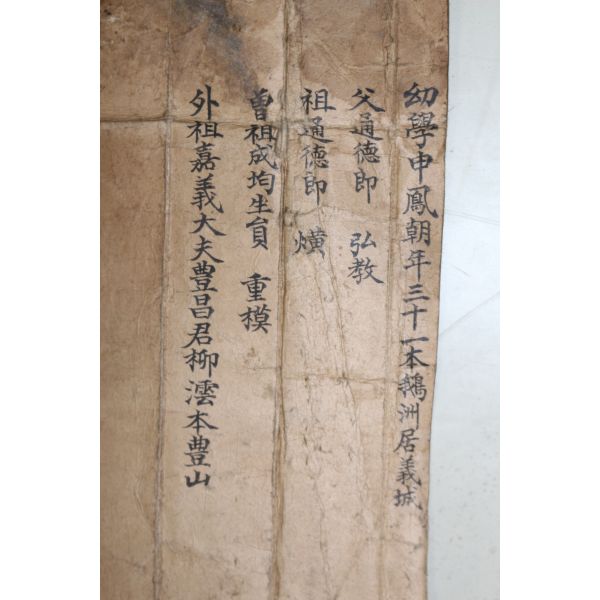 幼學申鳳朝年三十一本鵝洲居義城
父通德郎 弘教
祖通德郎 熿
曾祖成均生員 重模
外祖嘉義大夫豊昌君柳澐本豊山